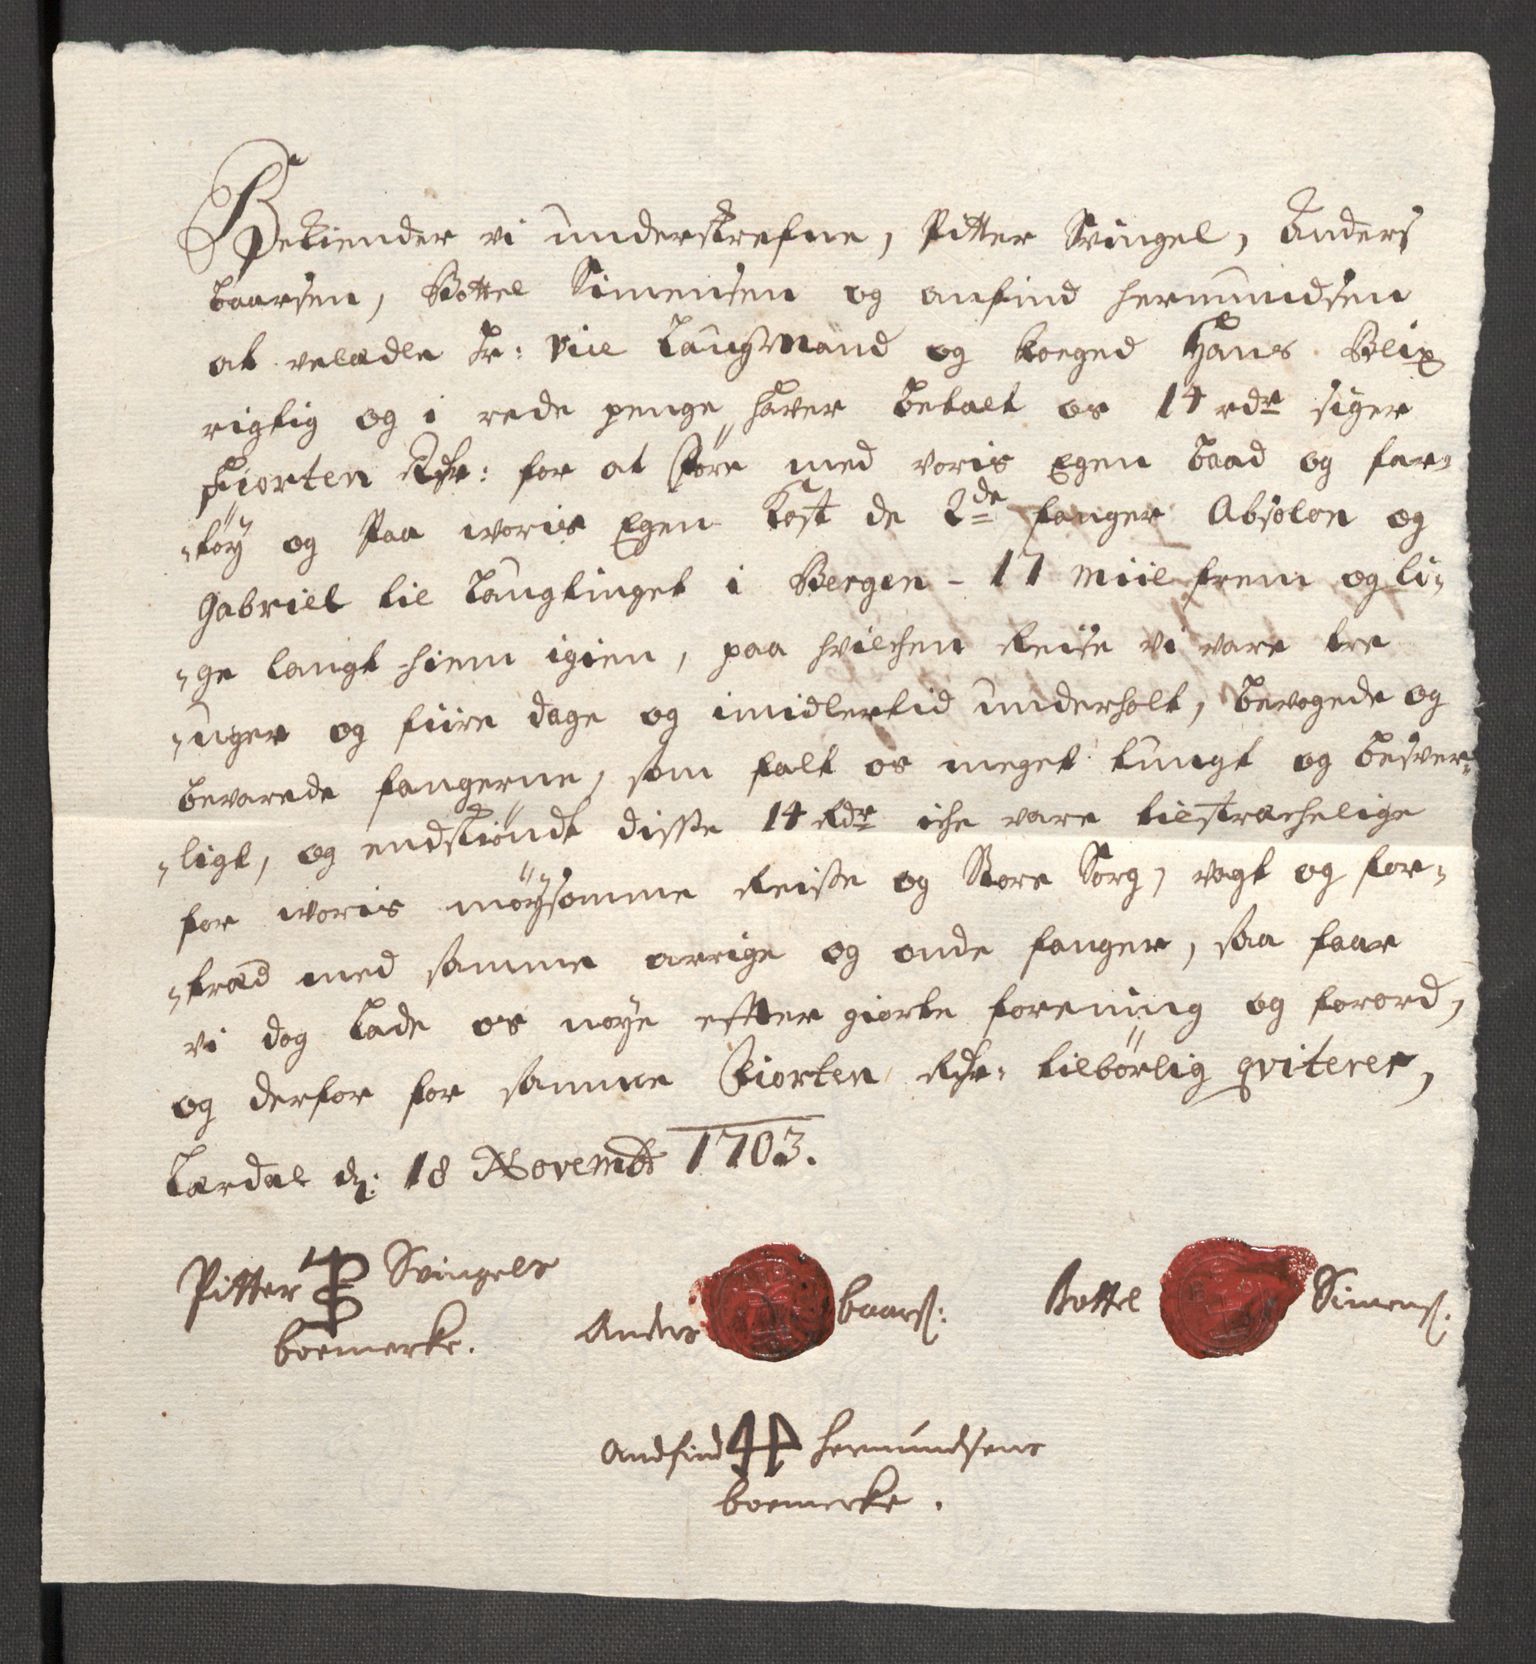 Bekiender vi underskrefne, Pitter Svingel, Anders
baarsen, Bottel Simensen og anfind hermundsen
at velædle Hr: vice Laugmand og foeged Hans Blix
rigtig og i rede penge haver betalt os 14 rdr siger
Fiorten Rdr: for at føre med voris Egen baad og far-
-tøÿ og Paa woris Egen Kost de 2de fanger Absolon og
Gabriel til Laugtinget i Bergen - 17 miil frem og li-
-ge langt hiem igien, paa hvilchen Reise vi vare tre
-uger og fiire dage og imidlertid underholt, bevogede og
bevarede fangerne, som falt os meget tungt og besver-
-ligt, og endskiøndt disse 14 Rdr iche vare tilstrechelige
for woris møÿsomme Reisse og Store Sorg, vagt og for-
-træd med samme arrige og onde fanger, saa faar
vi dog lade os nøye effter giorte forening og forord,
og derfor for samme Fiorten Rdr: tilbørlig qviterer,
Lærdal d: 18 Novembr 1703.
Pitter Svingels
boemerke.
Anders baars:
Bottel Simens:
Andfind hermundsens
boemerke.